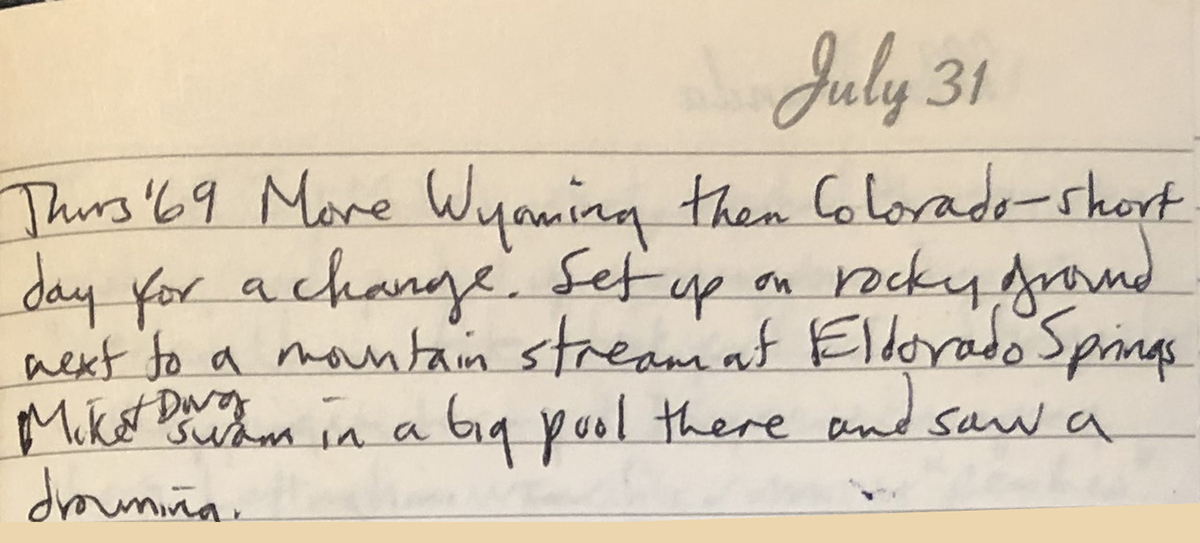 July 31
Thurs '69 More Wyoming then Colorado-short
day for a change. Set up on rocky ground
next to a mountain stream at Eldorado Springs
Mike + Doug swam in a big pool there and saw a
drowning.